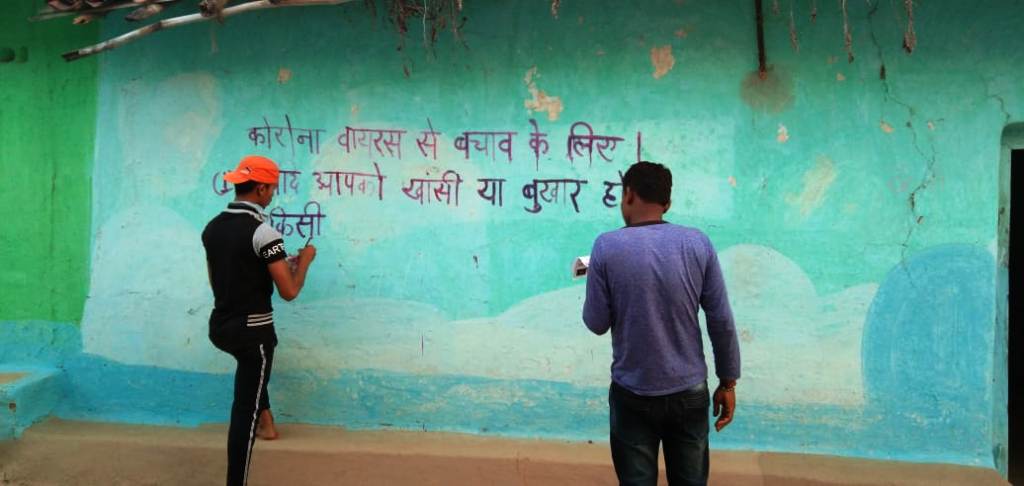 कोरोना वायरस से बचाव के लिए।
आपको खांसी या बुखार
किसी
EARTH